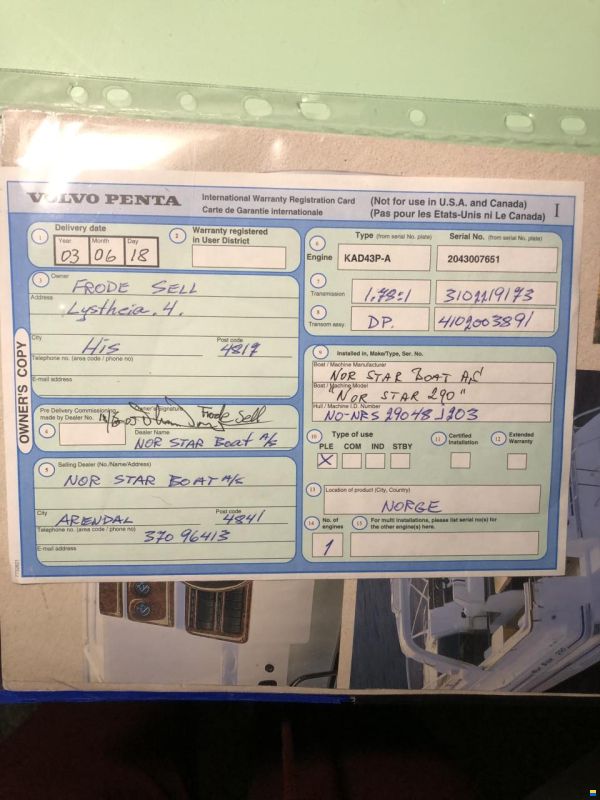 VOLVO PENTA
International Warranty Registration Card
Carte de Garantie internationale
(Not for use in U.S.A. and Canada)
(Pas pour les Etats-Unis ni Le Canada)
I
OWNER'S COPY
1
Delivery date
Year Month Day
03 06 18
2
Warranty registered
in User District
3
Owner
FRODE SELL
Address
Lystheia. 4.
City
HIS
Post code
4817
Telephone no. (area code / phone no)
E-mail address
Pre Delivery Commissioning
made by Dealer No.
4
Owner's Signature
Frode Sell
Dealer Name
NOR STAR Boat A/S
5
Selling Dealer (No./Name/Address)
NOR STAR BOAT A/S
City
ARENDAL
Post code
4841
Telephone no. (area code / phone no)
370 96413
E-mail address
6
Engine
Type (from serial No. plate)
KAD43P-A
Serial No. (from serial No. plate)
2043007651
7
Transmission
1.78:1
3102219173
8
Transom assy.
DP.
4102003891
9
Installed in, Make/Type, Ser. No.
Boat / Machine Manufacturer
NOR STAR BOAT AS
Boat / Machine Model
"NOR STAR 290"
Hull / Machine I.D. Number
NO-NES 29048 J203
10
Type of use
PLE COM IND STBY
X
11
Certified
Installation
12
Extended
Warranty
13
Location of product (City, Country)
NORGE
14
No. of
engines
1
15
For multi installations, please list serial no/s for
the other engine(s) here.